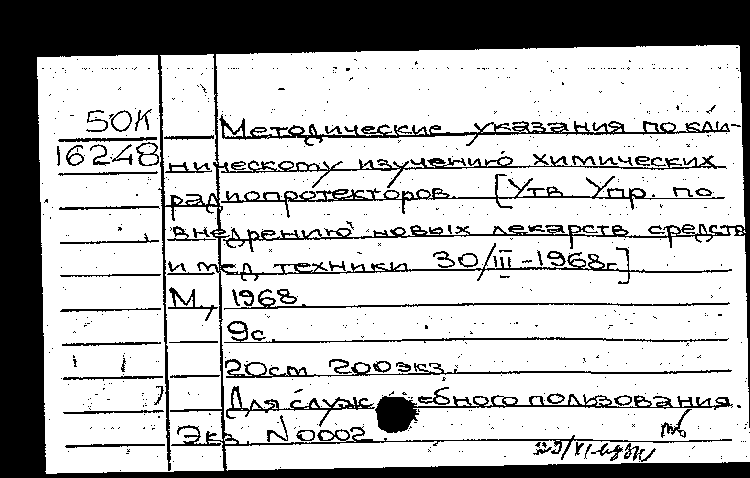 50К
16248
Методические указания по кли-
ническому изучению химических
радиопротекторов. [Утв Упр. по
внедрению новых лекарств средств
и мед. техники 30/III-1968г.]
М., 1968.
9с.
20см 200экз.
Для служебного пользования.
Экз. N0002.